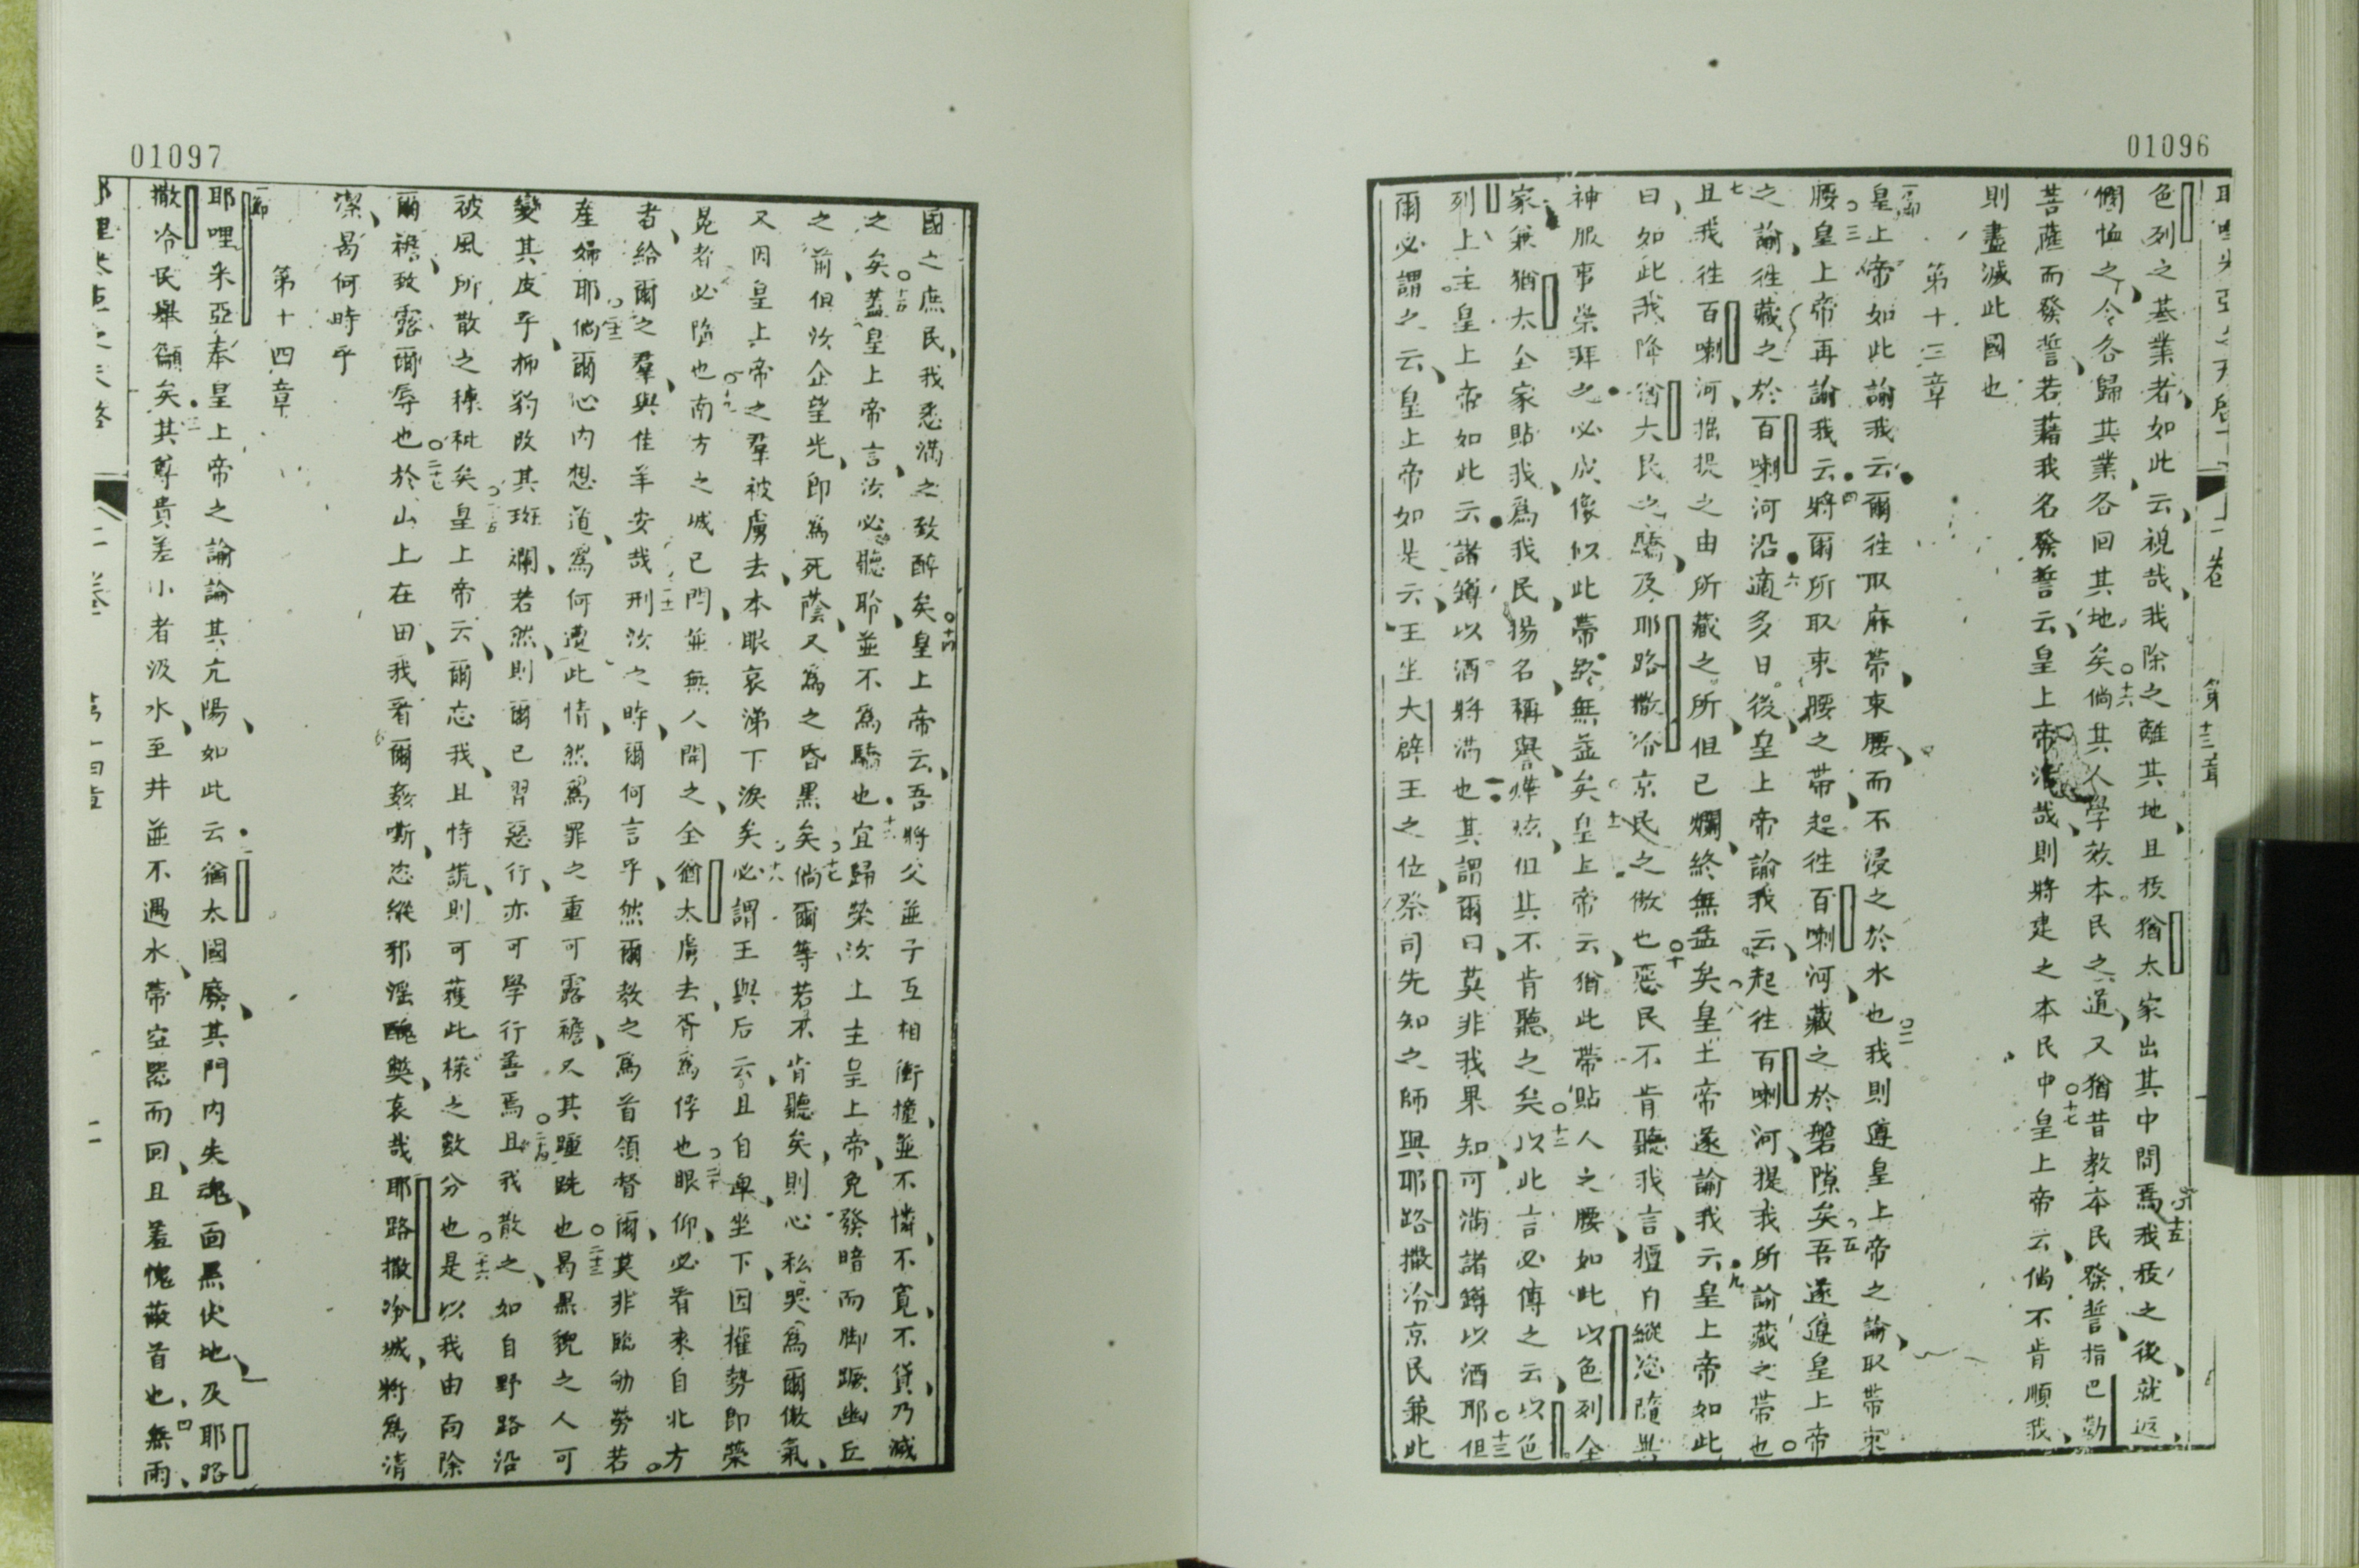 01096
二卷
第十三章
色列之基業者如此云視哉我除之離其地且拔猶太家出其中間焉十五我拔之後就返
憫恤之令各歸其業各回其地矣十六倘其人學效本民之道又猶昔教本民發誓指巴勒
菩薩而發誓若藉我名發誓云皇上帝活哉則將建之本民中十七皇上帝云倘不肯順我
則盡滅此國也
第十三章
一節皇上帝如此諭我云爾往取麻帶束腰而不浸之於水也二我則遵皇上帝之諭取帶束
腰三皇上帝再諭我云四將爾所取束腰之帶起往百喇河藏之於磐隙矣五吾遂遵皇上帝
之諭徃藏之於百喇河沿六適多日後皇上帝諭我云起往百喇河提我所諭藏之帶也
七且我徃百喇河掘提之由所藏之所但已爛終無益矣八皇上帝遂諭我云九皇上帝如此
曰如此我降猶太民之驕及耶路撒冷京民之傲也十惡民不肯聽我言擅自縱恣隨異
神服事崇拜之必成像似此帶終無益矣十一皇上帝云猶此帶貼人之腰如此以色列全
家兼猶太全家貼我爲我民揚名稱譽燁炫但其不肯聽之矣十二以此言必傳之云以色
列上主皇上帝如此云諸罇以酒將滿也其謂爾曰莫非我果知可滿諸罇以酒耶十三但
爾必謂之云皇上帝如是云王坐大辟王之位祭司先知之師與耶路撒冷京民兼此
01097
國之庶民我悉滿之致醉矣十四皇上帝云吾將父並子互相衝撞並不憐不寬不貸乃滅
之矣十五蓋皇上帝言汝必聽聆並不爲驕也十六宜歸榮汝上主皇上帝免發暗而脚蹶幽丘
之前但汝企望光即爲死蔭又爲之昏黑矣十七倘爾等若不肯聽矣則心私哭爲爾傲氣
又因皇上帝之羣被虜去本眼哀涕下淚矣十八必謂王與后云且自卑坐下因權勢即榮
冕者必隕也十九南方之城已閂並無人開之全猶太虜去胥爲俘也二十眼仰必看來自北方
者給爾之羣與佳羊安哉二十一刑汝之時爾何言乎然爾教之爲首領督爾莫非臨劬勞若
產婦耶二十二倘爾心內想道爲何遭此情然爲罪之重可露襜又其踵跣也二十三曷黑貌之人可
變其皮乎抑豹改其斑斕若然則爾已習惡行亦可學行善焉二十四且我散之如自野路沿
被風所散之穅秕矣二十五皇上帝云爾忘我且恃謊則可獲此樣之數分也二十六是以我由面除
爾襜致露爾辱也二十七於山上在田我看爾姦嘶恣縱邪淫醜獘哀哉耶路撒冷城將爲清
潔曷何時乎
第十四章
一節耶哩米亞奉皇上帝之諭論其亢陽如此云二猶太國廢其門內失魂面黑伏地及耶路
撒冷民舉籲矣三其尊貴差小者汲水至井並不遇水帶空器而回且羞愧蔽首也四無雨
二卷